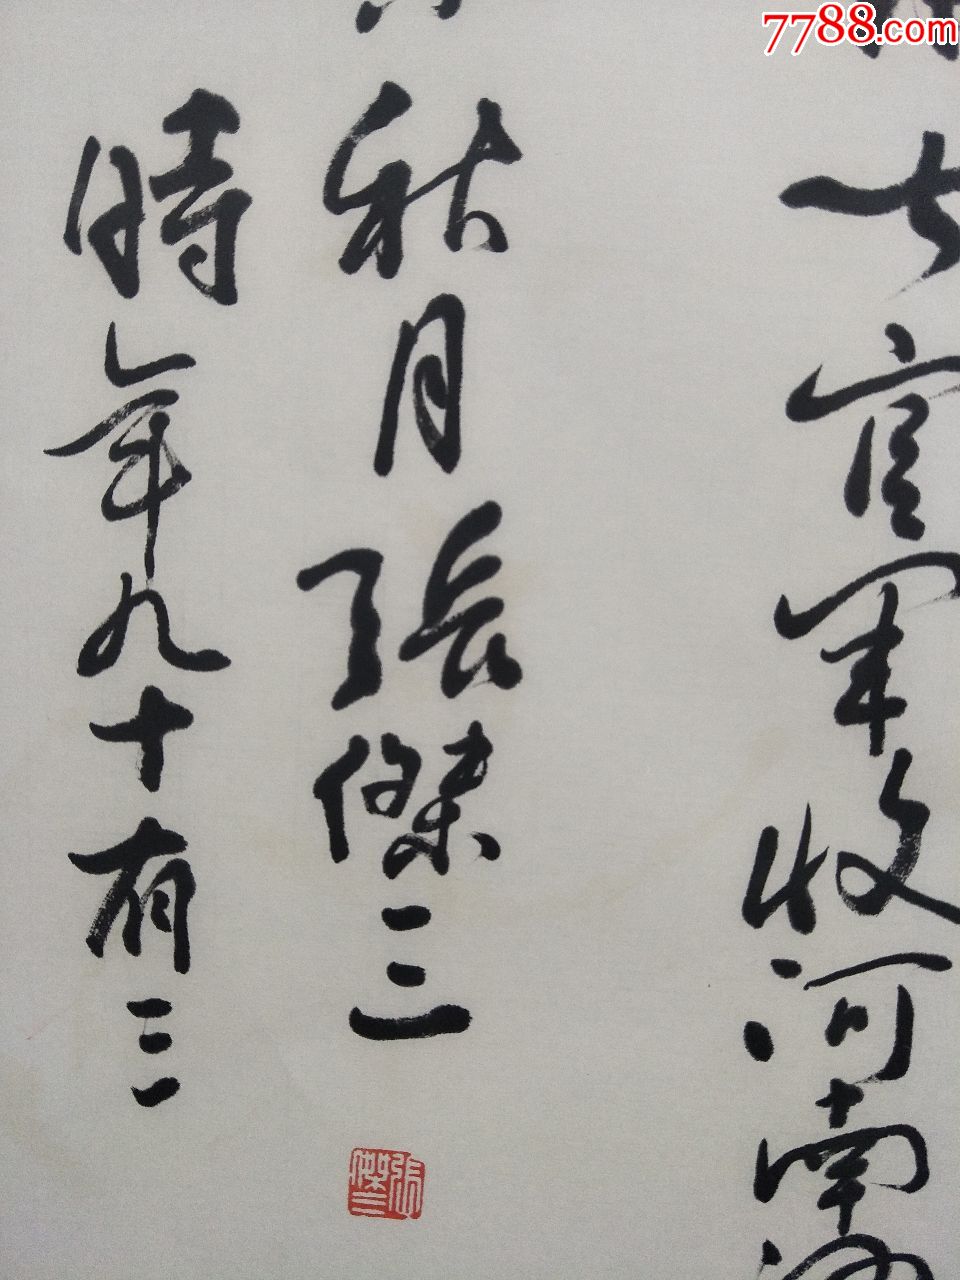 7788.com
官軍收河南
秋月張傑三
時年九十有三
張傑三